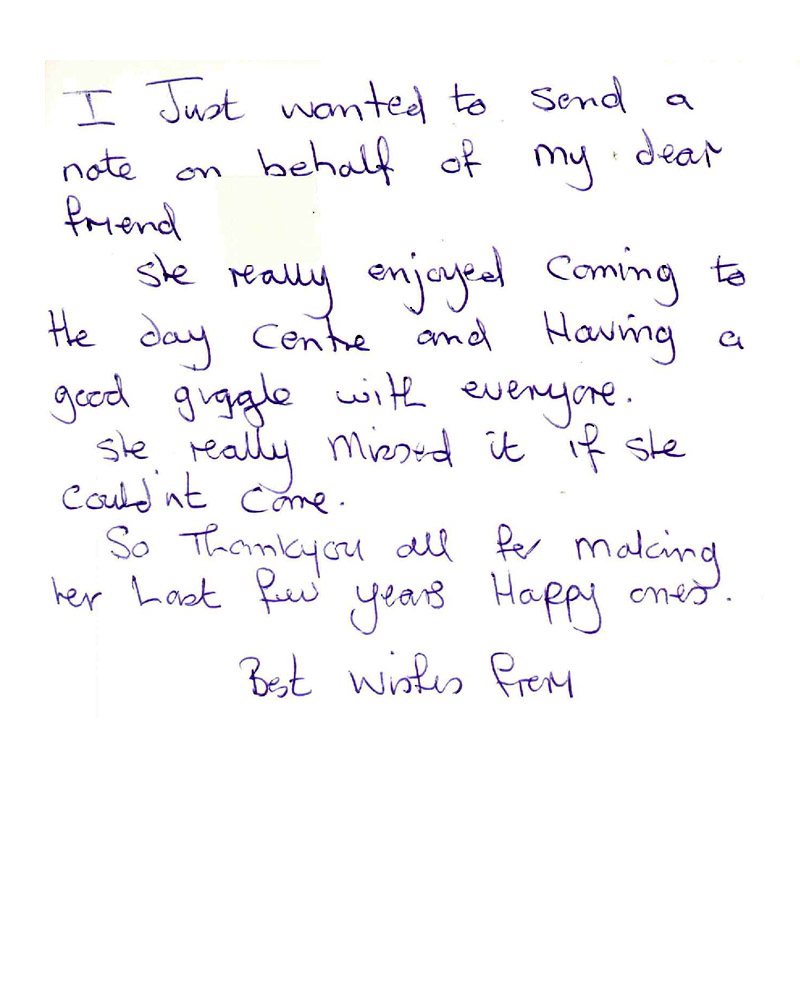 I Just wanted to send a
note on behalf of my dear
friend
she really enjoyed coming to
the day centre and Having a
good giggle with everyone.
she really missed it if she
could'nt come.
So Thankyou all for making
her Last few years Happy ones.
Best wishes from